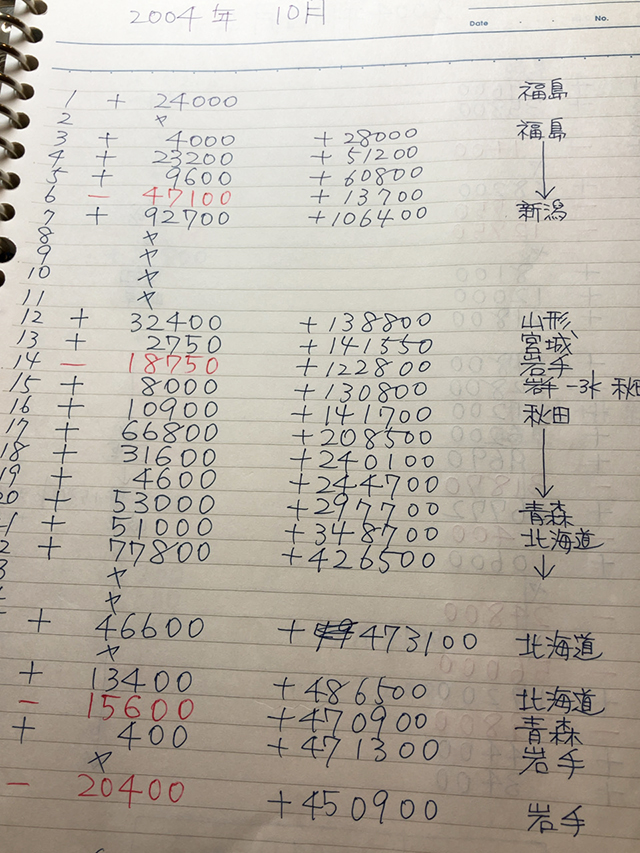 2004年 10月
Date ・ ・ No.
1 + 24000 福島
2 ヤ
3 + 4000 +28000 福島
4 + 23200 +51200
5 + 9600 +60800
6 − 47100 +13700
7 + 92700 +106400 新潟
8 ヤ
9 ヤ
10 ヤ
11 ヤ
12 + 32400 +138800 山形
13 + 2750 +141550 宮城
14 − 18750 +122800 岩手
15 + 8000 +130800 岩手 秋田
16 + 10900 +141700 秋田
17 + 66800 +208500
18 + 31600 +240100
19 + 4600 +244700
20 + 53000 +297700 青森
1 + 51000 +348700 北海道
2 + 77800 +426500
3 ヤ
ヤ
+ 46600 +473100 北海道
ヤ
+ 13400 +486500 北海道
− 15600 +470900 青森
+ 400 +471300 岩手
ヤ
− 20400 +450900 岩手